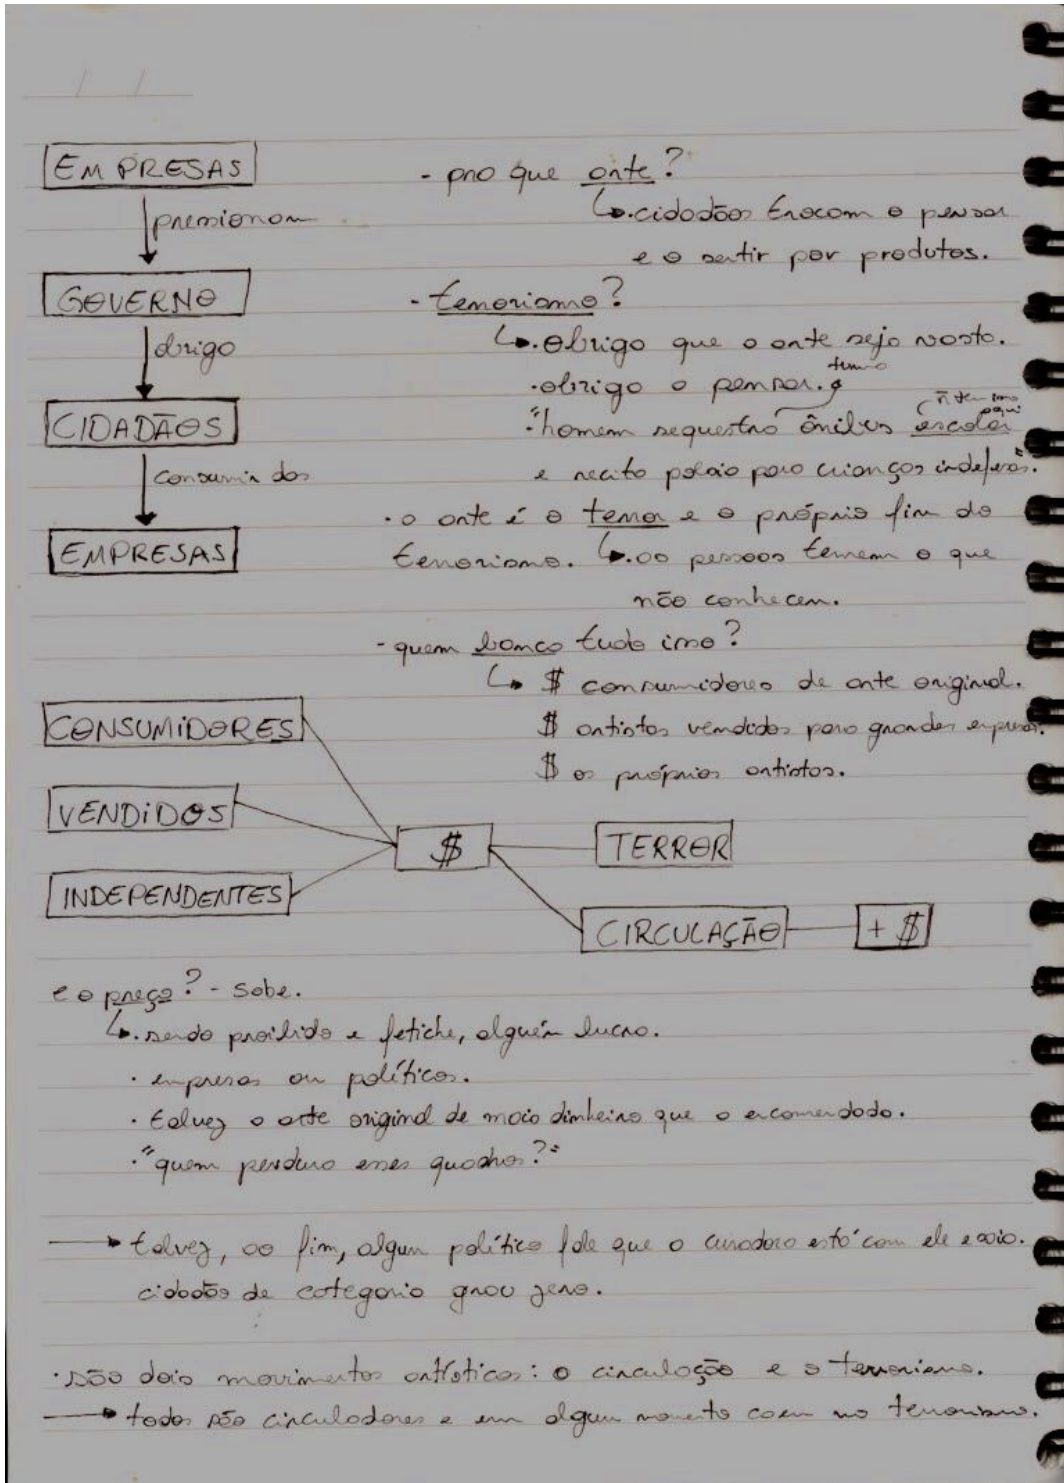 / /
EMPRESAS
pressionam
GOVERNO
obriga
CIDADÃOS
consumir das
EMPRESAS
- pra que arte?
↳ .cidadãos trocam o pensar
e o sentir por produtos.
- terrorismo?
↳ .obriga que a arte seja vista.
.obriga a pensar.
turvo
ñ tem isso
aqui
."homem sequestra ônibus escolar
e recita poesia para crianças indefesas".
. a arte é o terror e o próprio fim do
terrorismo. ↳ .as pessoas temem o que
não conhecem.
- quem banca tudo isso?
↳ $ consumidores de arte original.
$ artistas vendidos para grandes empresas.
$ os próprios artistas.
CONSUMIDORES
VENDIDOS
INDEPENDENTES
$
TERROR
CIRCULAÇÃO
+ $
e o preço? - sobe.
↳ .sendo proibido e fetiche, alguém lucra.
. empresas ou políticos.
. talvez a arte original dê mais dinheiro que a encomendada.
."quem pendura esses quadros?"
→ talvez, ao fim, algum político fale que a curadora está com ele e saia.
cidadãos de categoria grau zero.
. são dois movimentos artísticos: a circulação e o terrorismo.
→ todos são circuladores e em algum momento caem no terrorismo.